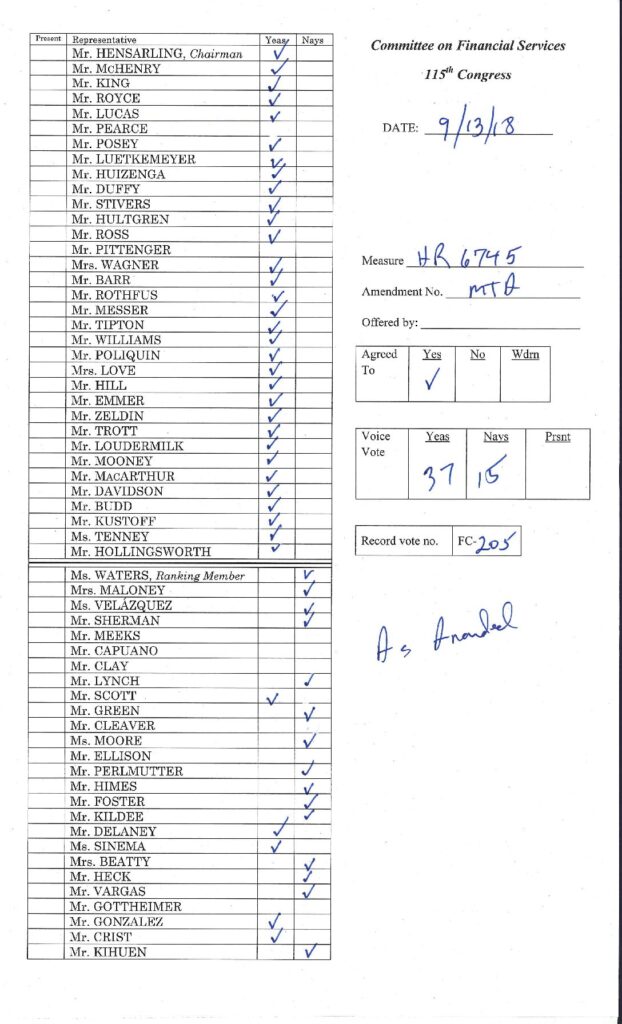 Present Representative Yeas Nays
Mr. HENSARLING, Chairman ✓
Mr. MCHENRY ✓
Mr. KING ✓
Mr. ROYCE ✓
Mr. LUCAS ✓
Mr. PEARCE
Mr. POSEY ✓
Mr. LUETKEMEYER ✓
Mr. HUIZENGA ✓
Mr. DUFFY ✓
Mr. STIVERS ✓
Mr. HULTGREN ✓
Mr. ROSS ✓
Mr. PITTENGER
Mrs. WAGNER ✓
Mr. BARR ✓
Mr. ROTHFUS ✓
Mr. MESSER ✓
Mr. TIPTON ✓
Mr. WILLIAMS ✓
Mr. POLIQUIN ✓
Mrs. LOVE ✓
Mr. HILL ✓
Mr. EMMER ✓
Mr. ZELDIN ✓
Mr. TROTT ✓
Mr. LOUDERMILK ✓
Mr. MOONEY ✓
Mr. MACARTHUR ✓
Mr. DAVIDSON ✓
Mr. BUDD ✓
Mr. KUSTOFF ✓
Ms. TENNEY ✓
Mr. HOLLINGSWORTH ✓
Ms. WATERS, Ranking Member ✓
Mrs. MALONEY ✓
Ms. VELÁZQUEZ ✓
Mr. SHERMAN ✓
Mr. MEEKS
Mr. CAPUANO
Mr. CLAY
Mr. LYNCH ✓
Mr. SCOTT ✓
Mr. GREEN ✓
Mr. CLEAVER
Ms. MOORE ✓
Mr. ELLISON
Mr. PERLMUTTER ✓
Mr. HIMES ✓
Mr. FOSTER ✓
Mr. KILDEE ✓
Mr. DELANEY ✓
Ms. SINEMA ✓
Mrs. BEATTY ✓
Mr. HECK ✓
Mr. VARGAS ✓
Mr. GOTTHEIMER
Mr. GONZALEZ ✓
Mr. CRIST ✓
Mr. KIHUEN ✓
Committee on Financial Services
115th Congress
DATE: 9/13/18
Measure HR 6745
Amendment No. MTA
Offered by:
Agreed To Yes No Wdrn
✓
Voice Vote Yeas Nays Prsnt
37 15
Record vote no. FC-205
As Amended